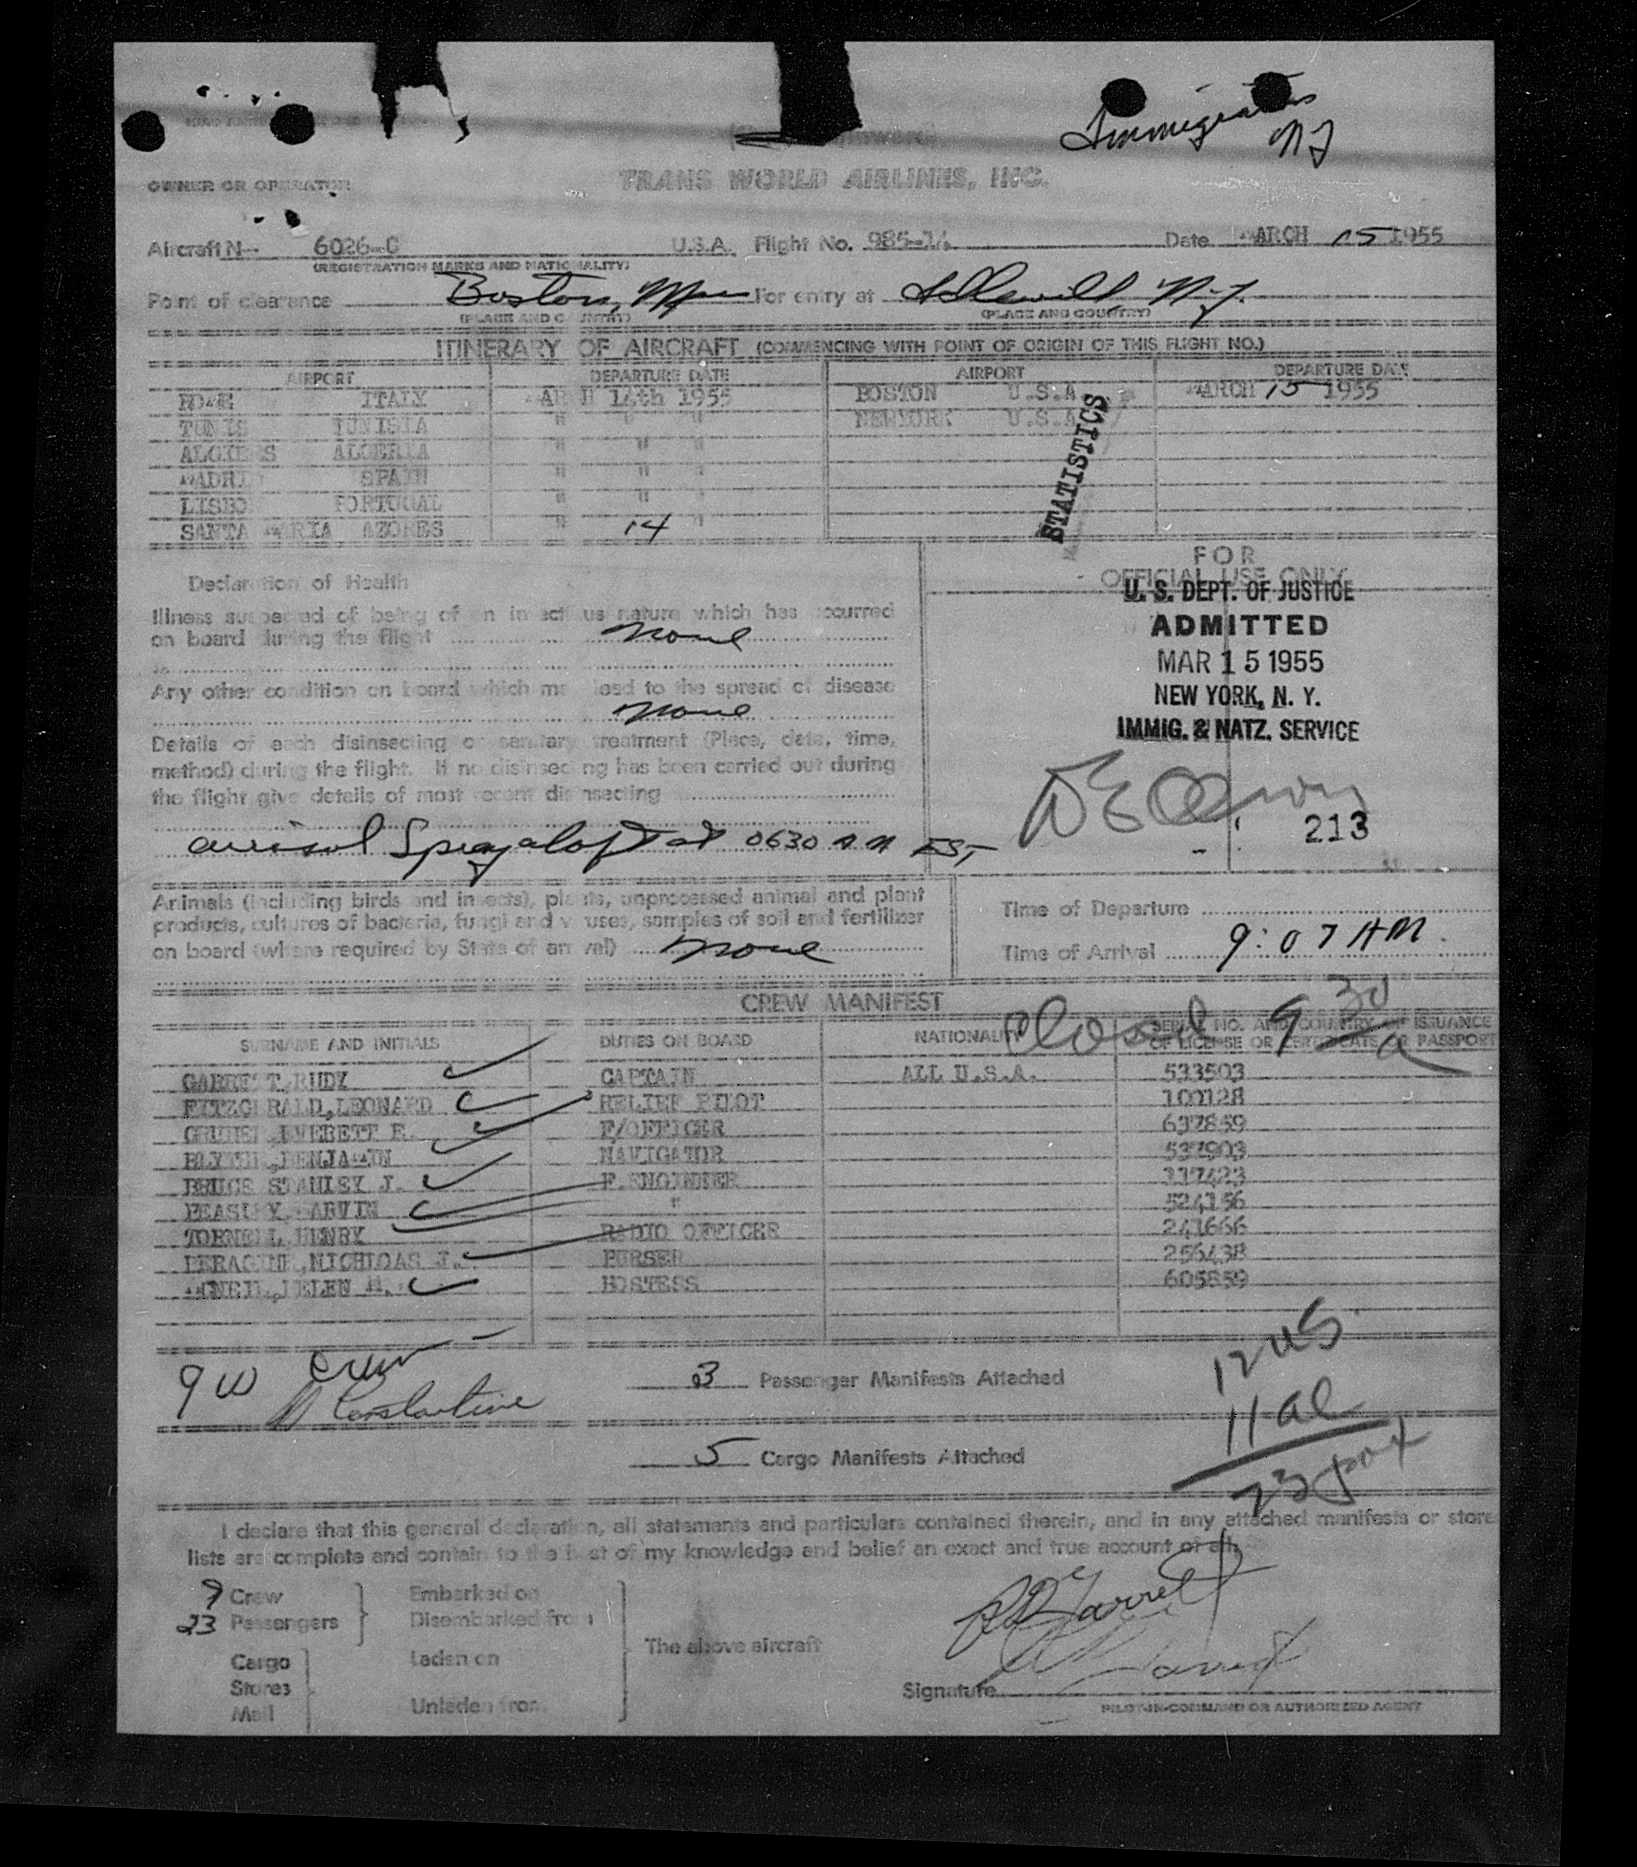 Immigration
NY
(Inward)
TRANS WORLD AIRLINES, INC.
OWNER OR OPERATOR
Aircraft N- 6026-C U.S.A. Flight No. 985-14 Date MARCH 15 1955
(REGISTRATION MARKS AND NATIONALITY)
Point of clearance Boston, For entry at Idlewild, N.Y.
(PLACE AND COUNTRY) (PLACE AND COUNTRY)
ITINERARY OF AIRCRAFT (COMMENCING WITH POINT OF ORIGIN OF THIS FLIGHT NO.)
AIRPORT DEPARTURE DATE AIRPORT DEPARTURE DATE
ROME ITALY MARCH 14th 1955 BOSTON U.S.A. MARCH 15 1955
TUNIS TUNISIA " " " NEWYORK U.S.A.
ALGIERS ALGERIA " " "
MADRID SPAIN " " "
LISBON PORTUGAL " " "
SANTA MARIA AZORES " 14 "
STATISTICS
FOR
OFFICIAL USE ONLY
U. S. DEPT. OF JUSTICE
ADMITTED
MAR 15 1955
NEW YORK, N. Y.
IMMIG. & NATZ. SERVICE
213
Declaration of Health
Illness suspected of being of an infectious nature which has occurred
on board during the flight none
Any other condition on board which may lead to the spread of disease
none
Details of each disinsecting or sanitary treatment (Place, date, time,
method) during the flight. If no disinsecting has been carried out during
the flight give details of most recent disinsecting
aerisol Spray aloft at 0630 AM EST
Animals (including birds and insects), plants, unprocessed animal and plant
products, cultures of bacteria, fungi and viruses, samples of soil and fertilizer
on board (where required by State of arrival) none
Time of Departure
Time of Arrival 9:07 AM
CREW MANIFEST
Closed 9 30 a
SURNAME AND INITIALS DUTIES ON BOARD NATIONALITY SERIAL NO. AND COUNTRY OF ISSUANCE
OF LICENSE OR CERTIFICATE OR PASSPORT
GARRETT, RUDY CAPTAIN ALL U.S.A. 533503
FITZGERALD, LEONARD RELIEF PILOT 100128
EVERETT F. F/OFFICER 637859
BLYTHE, BENJAMIN NAVIGATOR 537903
STANLEY J. F.ENGINEER 317423
BEASLEY, MARVIN " 524156
TORNELL, HENRY RADIO OFFICER 241666
PERAGINE, NICHLOAS J. PURSER 256438
MCNEIL, HELEN M. HOSTESS 605859
9 W crew
D Constantine
3 Passenger Manifests Attached
5 Cargo Manifests Attached
12 US
11 al
23 pax
I declare that this general declaration, all statements and particulars contained therein, and in any attached manifests or store
lists are complete and contain to the best of my knowledge and belief an exact and true account of all,
9 Crew Embarked on
23 Passengers Disembarked from
The above aircraft
Cargo Laden on
Stores
Mail Unladen from
Signature R Garrett
PILOT-IN-COMMAND OR AUTHORIZED AGENT